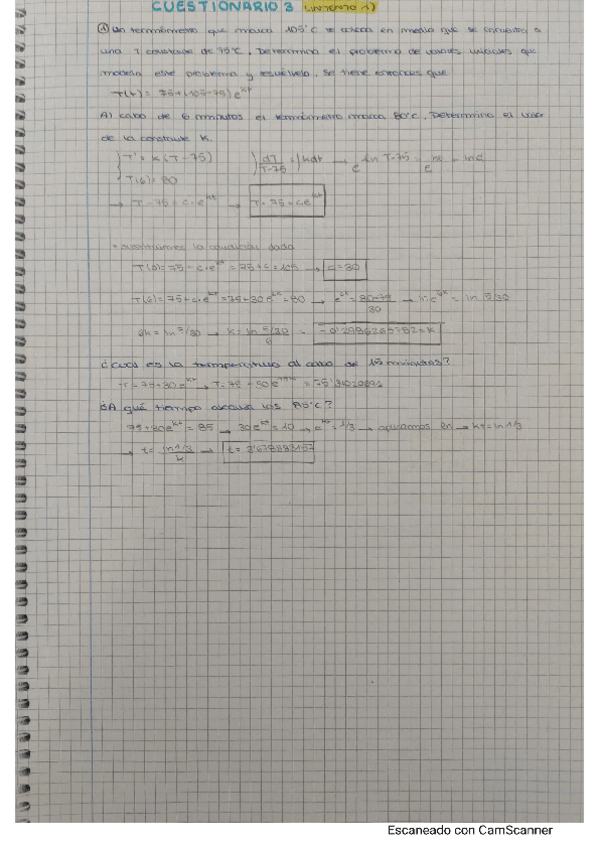 CUESTIONARIO 3 (INTENTO 1)
① Un termómetro que marca 105°C se coloca en medio que se encuentra a
una T constante de 75°C. Determina el problema de valores iniciales que
modela este problema y resuélvelo. Se tiene entonces que
T(t) = 75+(105-75)e^kt
Al cabo de 6 minutos el termómetro marca 80°C. Determina el valor
de la constante k.
T' = k(T-75) ∫dT/T-75 = ∫kdt → e^ln T-75 = e
T(6) = 80
→ T-75 = c·e^kt → T = 75+ce^kt
la ecuación dada
T(0) = 75+c·e^kt = 75+c = 105 → c=30
T(6) = 75+c·e^kt = 75+30e^6k = 80 → e^6k = 80-75/30 → ln e^6k = ln 5/30
6k = ln 5/30 → k = ln 5/30/6 = -0'2986265782 = k
¿Cuál es la temperatura al cabo de 15 minutos?
T = 75+30e^kt → T = 75
¿A qué tiempo alcanza los 85°C?
75+30e^kt = 85 → 30e^kt = 10 → e^kt = 1/3 → aplicamos ln → kt = ln 1/3
→ t = ln 1/3/k → t = 3'678883157
Escaneado con CamScanner